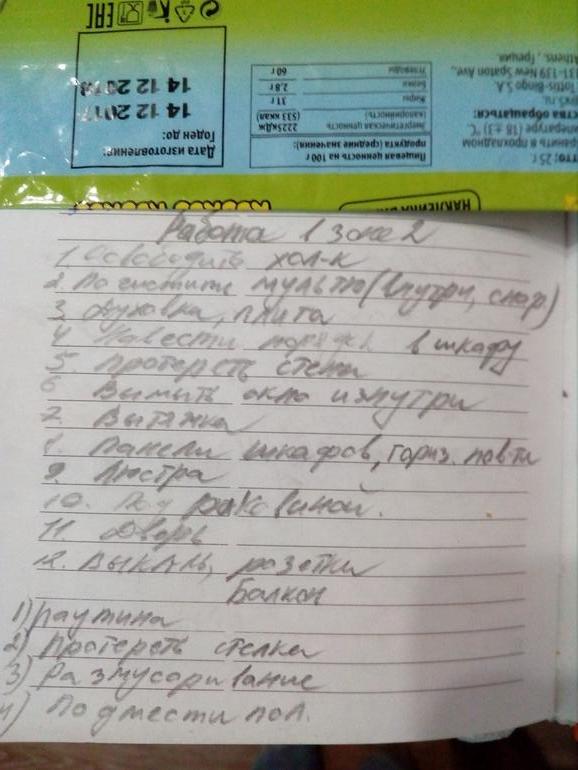 EAC
14 12 2018
14 12 2017
Годен до:
Дата изготовления:
Пищевая ценность на 100 г
продукта (средние значения):
Энергетическая ценность
(калорийность)
2225кДж
(533 ккал)
Жиры 31г
Белки 2,8 г
Углеводы 60 г
ТТО: 25 г
ранить в прохладном
пературе (18 ±3) °С
ства обращаться:
Tottis-Bingo S.A.
131-139 New Spaton Ave.,
Athens, Греция.
НАКЛЕЙКА
Работа в зоне 2
1. Освободить хол-к
2. Почистить мульти (внутри, снар)
3 Духовка, плита
4 Навести порядок в шкафу
5. Протереть стены
6 Вымыть окно изнутри
7. Вытяжка
8. Панели шкафов, гориз. пов-ти
9. Люстра
10. Под раковиной.
11. Дверь
12. Выкль, розетки
Балкон
1) Паутина
2) Протереть стелка
3) Размусоривание
4) Подмести пол.